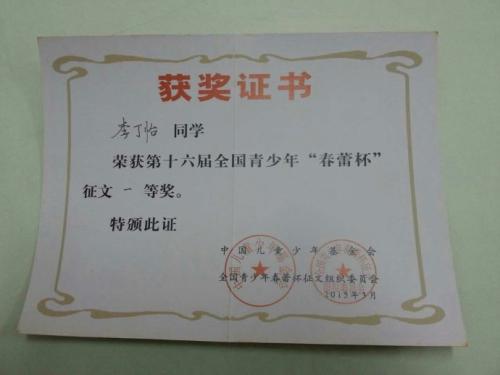 获奖证书
李丁怡 同学
荣获第十六届全国青少年“春蕾杯”
征文 一 等奖。
特颁此证
中国儿童少年基金会
全国青少年春蕾杯征文组织委员会
2013年3月